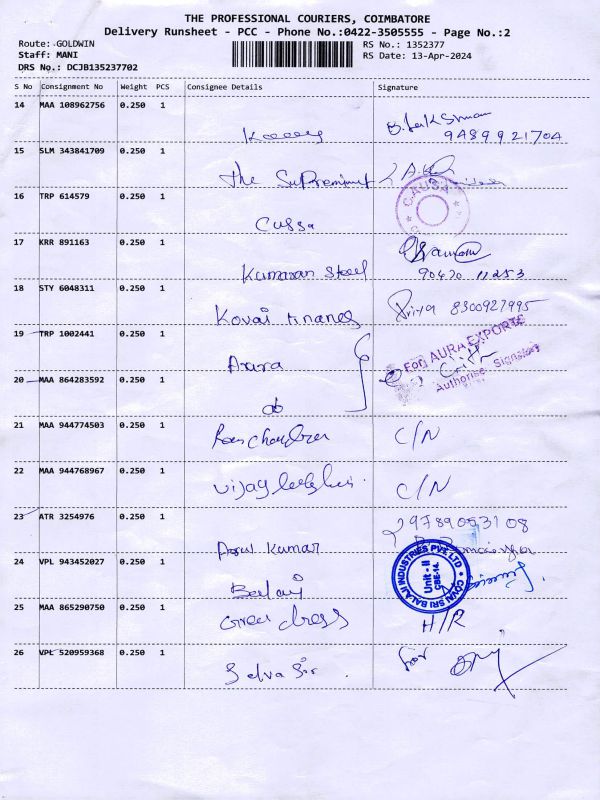 THE PROFESSIONAL COURIERS, COIMBATORE
Delivery Runsheet - PCC - Phone No.:0422-3505555 - Page No.:2
Route: GOLDWIN
RS No.: 1352377
Staff: MANI
RS Date: 13-Apr-2024
DRS No.: DCJB135237702
S No Consignment No Weight PCS Consignee Details Signature
14 MAA 108962756 0.250 1
9489921704
15 SLM 343841709 0.250 1
The
16 TRP 614579 0.250 1
Cussa CAUSA
17 KRR 891163 0.250 1
Kumaran Steel 90470 11253
18 STY 6048311 0.250 1
Kovai Finance Priya 8300927995
19 TRP 1002441 0.250 1
For AURA EXPORTS
Authorise Signatory
20 MAA 864283592 0.250 1
do
21 MAA 944774503 0.250 1
C/N
22 MAA 944768967 0.250 1
C/N
23 ATR 3254976 0.250 1
Arul Kumar
24 VPL 943452027 0.250 1
Balaji COVAI SRI BALAJI INDUSTRIES PVT LTD
Unit - II
CBE-14.
25 MAA 865290750 0.250 1
Green dress H/R
26 VPL 520959368 0.250 1
Selva Sir